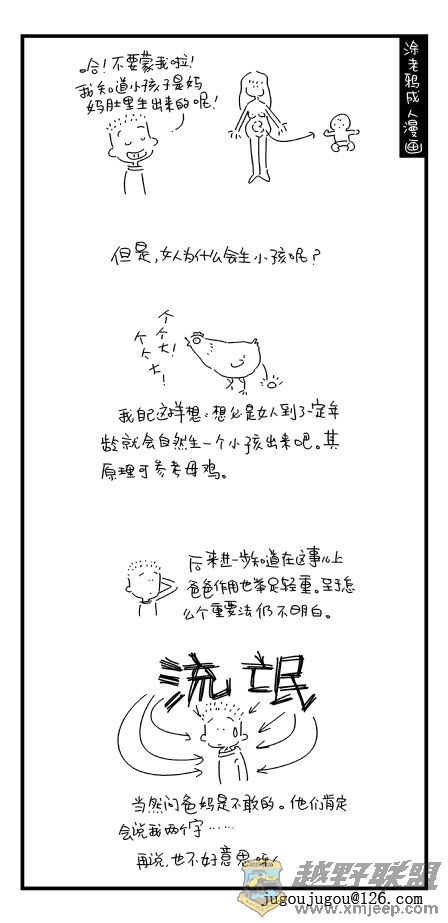 涂老鸦成人漫画
哈！不要蒙我啦！
我知道小孩子是妈
妈肚里生出来的呢！
但是，女人为什么会生小孩呢？
个
个
个大！
个
大！
我自己这样想：想必是女人到了一定年
龄就会自然生一个小孩出来吧。其
原理可参考母鸡。
后来进一步知道在这事儿上
爸爸作用也举足轻重。至于怎
么个重要法仍不明白。
流氓
当然问爸妈是不敢的。他们肯定
会说我两个字……
再说，也不好意思呀！
越野联盟
jugoujugou@126.com
www.xmjeep.com